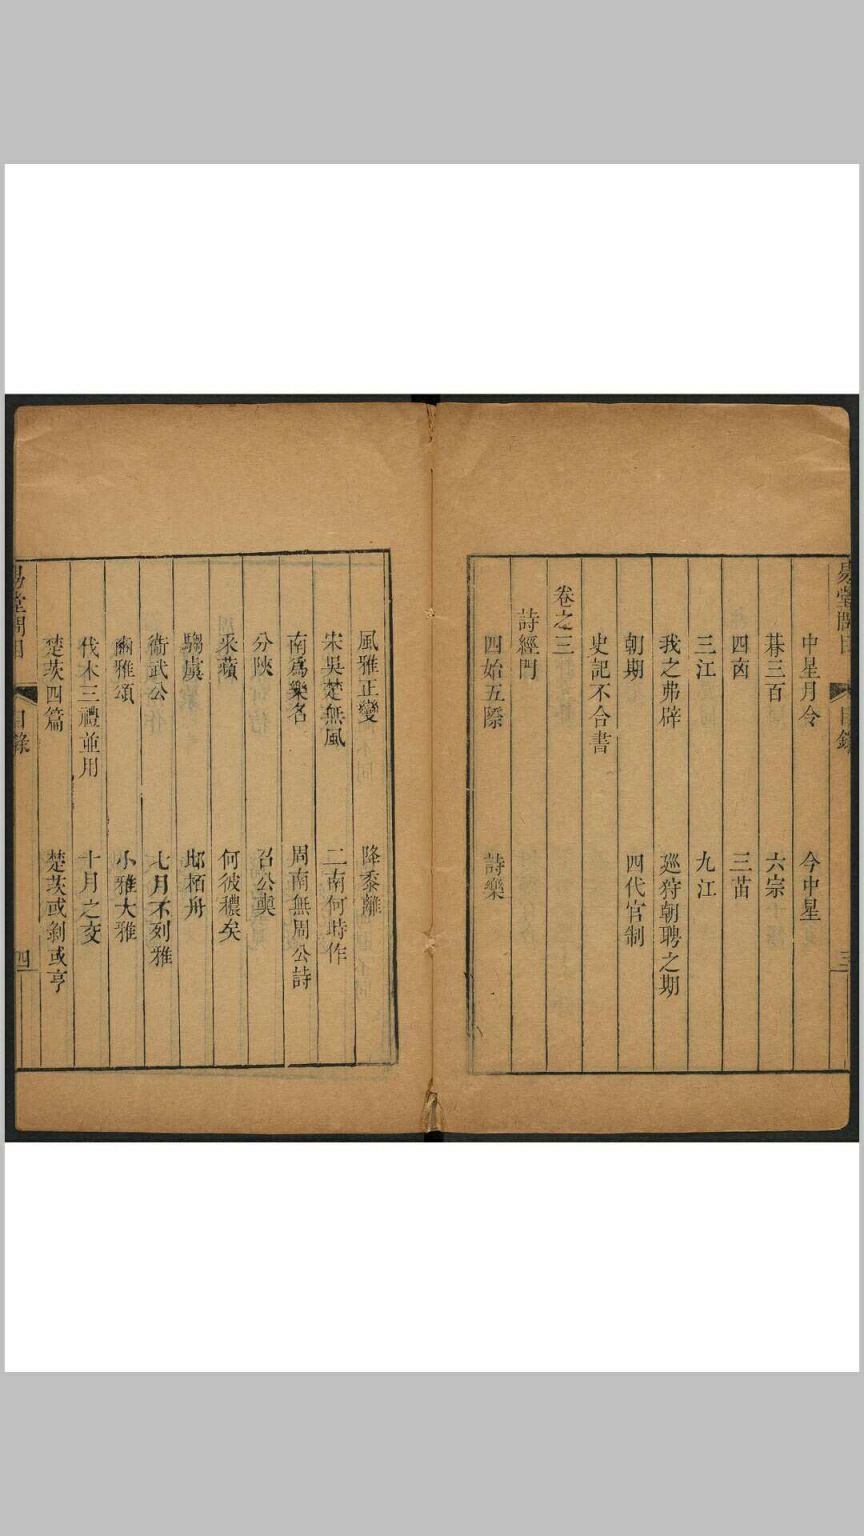 易堂問目 目錄 三
中星月令 今中星
朞三百 六宗
四㓙 三苗
三江 九江
我之弗辟 廵狩朝聘之期
朝期 四代官制
史記不合書
卷之三
詩經門
四始五際 詩樂
風雅正變 降黍離
宋吳楚無風 二南何時作
南爲樂名 周南無周公詩
分陝 召公奭
采蘋 何彼穠矣
騶虞 邶栢舟
衞武公 七月不列雅
豳雅頌 小雅大雅
伐木三禮並用 十月之交
楚茨四篇 楚茨或剝或亨
易堂問目 目錄 四